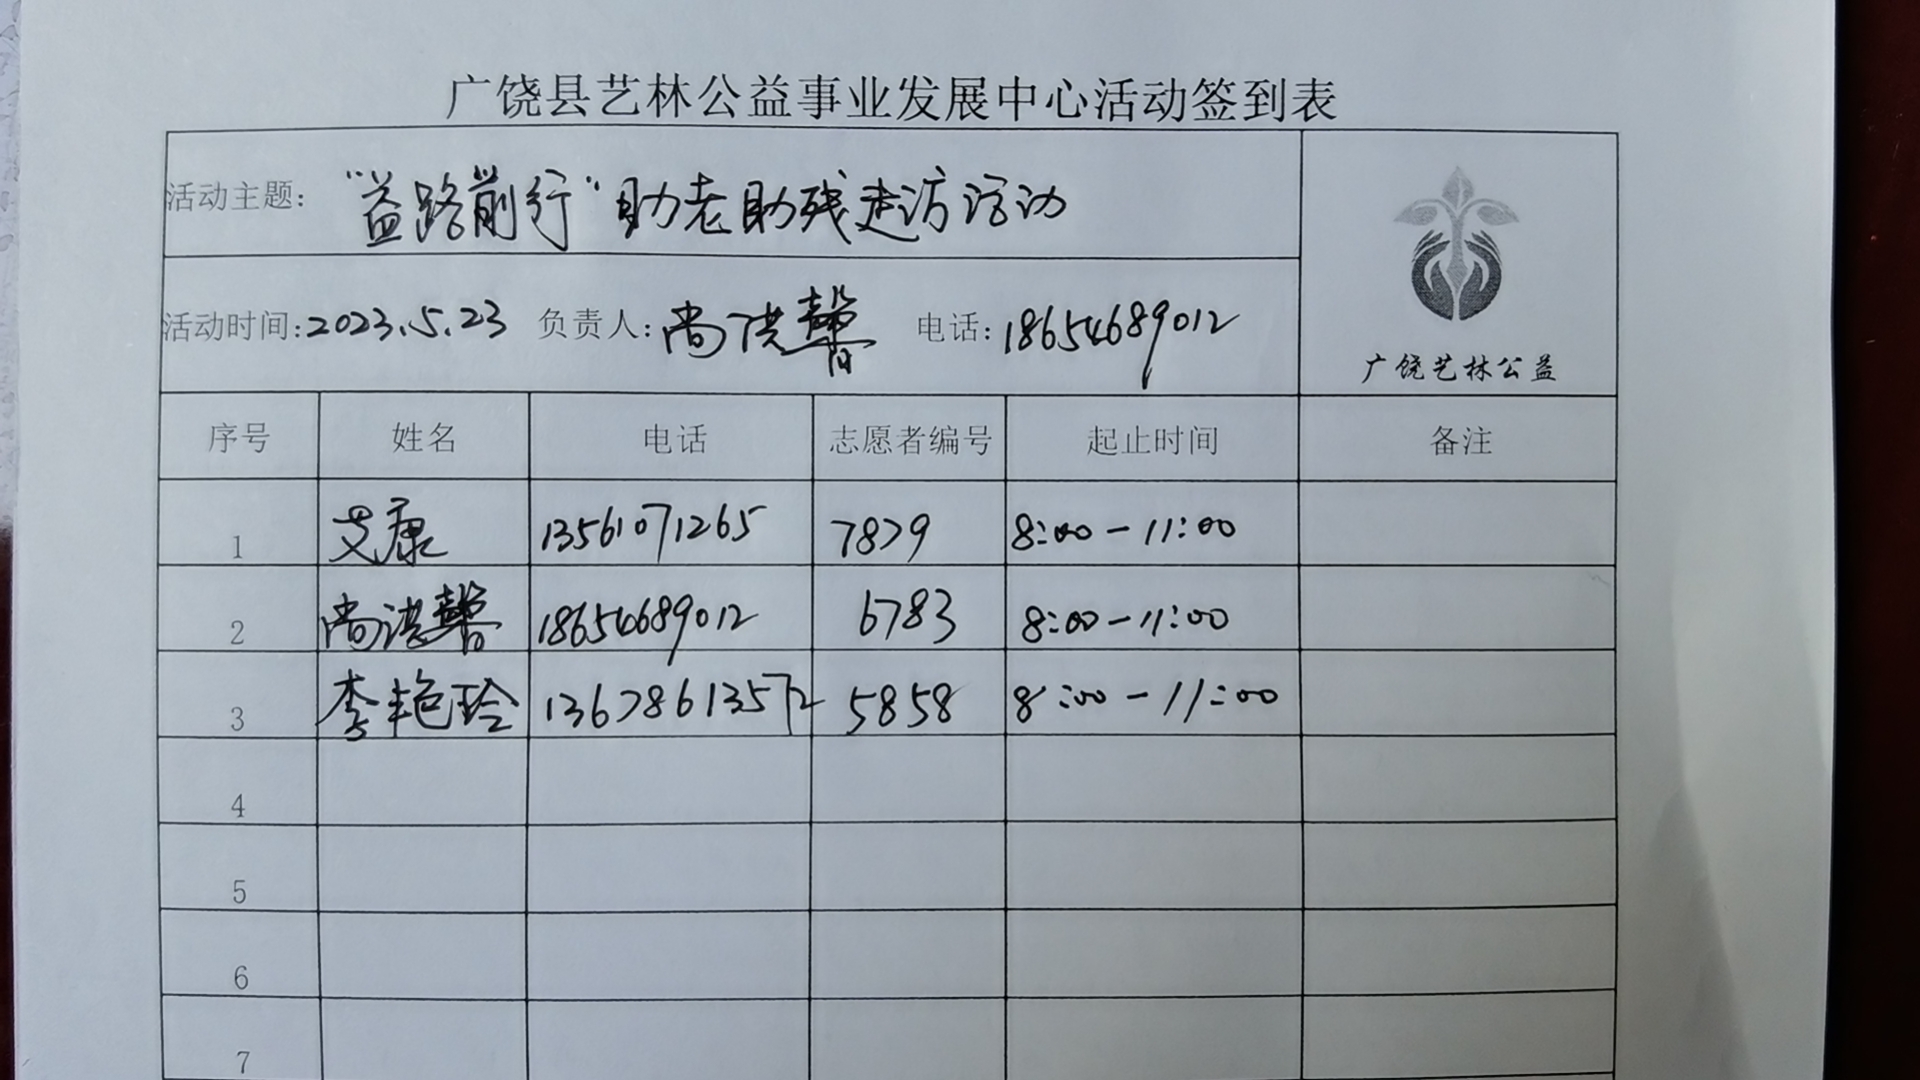 广饶县艺林公益事业发展中心活动签到表
活动主题: “益路前行”助老助残走访活动
活动时间: 2023.5.23 负责人: 尚洪馨 电话: 18654689012
广饶艺林公益
序号 姓名 电话 志愿者编号 起止时间 备注
1 艾康 13561071265 7879 8:00-11:00
2 尚洪馨 18654689012 6783 8:00-11:00
3 李艳玲 13678613572 5858 8:00-11:00
4
5
6
7